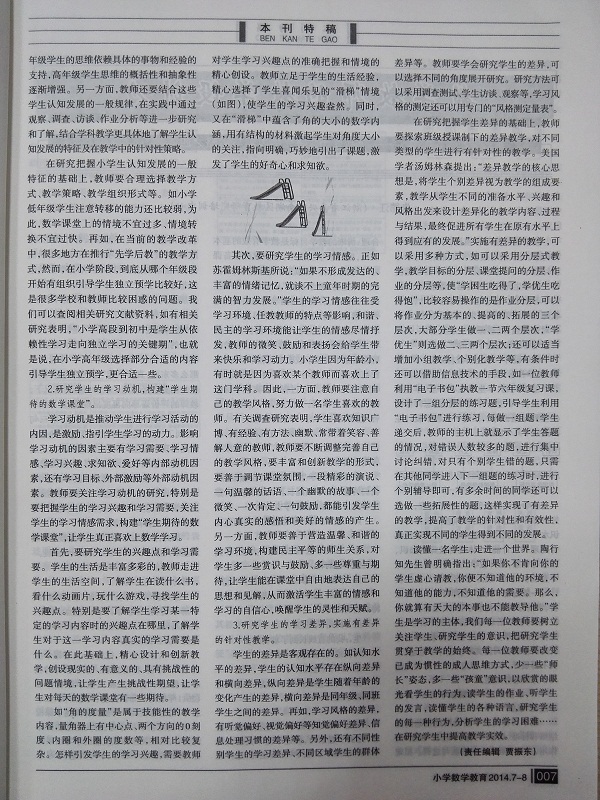 本刊特稿
BEN KAN TE GAO
年级学生的思维依赖具体的事物和经验的
支持，高年级学生思维的概括性和抽象性
逐渐增强。另一方面，教师还要结合这些
学生认知发展的一般规律，在实践中通过
观察、调查、访谈、作业分析等进一步研究
和了解，结合学科教学更具体地了解学生认
知发展的特征及在教学中的针对性策略。
在研究把握小学生认知发展的一般
特征的基础上，教师要合理选择教学方
式、教学策略、教学组织形式等。如小学
低年级学生注意转移的能力还比较弱，为
此，数学课堂上的情境不宜过多、情境转
换不宜过快。再如，在当前的教学改革
中，很多地方在推行“先学后教”的教学方
式，然而，在小学阶段，到底从哪个年级段
开始有组织引导学生独立预学比较好，这
是很多学校和教师比较困惑的问题。我
们可以查阅相关研究文献资料，如有相关
研究表明，“小学高段到初中是学生从依
赖性学习走向独立学习的关键期”，也就
是说，在小学高年级选择部分合适的内容
引导学生独立预学，更合适一些。
2.研究学生的学习动机，构建“学生期
待的数学课堂”。
学习动机是推动学生进行学习活动的
内因，是激励、指引学生学习的动力。影响
学习动机的因素主要有学习需要、学习情
感、学习兴趣、求知欲、爱好等内部动机因
素，还有学习目标、外部激励等外部动机因
素。教师要关注学习动机的研究，特别是
要把握学生的学习兴趣和学习需要，关注
学生的学习情感需求，构建“学生期待的数
学课堂”，让学生真正喜欢上数学学习。
首先，要研究学生的兴趣点和学习需
要。学生的生活是丰富多彩的，教师走进
学生的生活空间，了解学生在读什么书，
看什么动画片，玩什么游戏，寻找学生的
兴趣点。特别是要了解学生学习某一特
定的学习内容时的兴趣点在哪里，了解学
生对于这一学习内容真实的学习需要是
什么。在此基础上，精心设计和创新教
学，创设现实的、有意义的、具有挑战性的
问题情境，让学生产生挑战性期望，让学
生对每天的数学课堂有一些期待。
如“角的度量”是属于技能性的教学
内容，量角器上有中心点、两个方向的0刻
度、内圈和外圈的度数等，相对比较复
杂。怎样引发学生的学习兴趣，需要教师
对学生学习兴趣点的准确把握和情境的
精心创设。教师立足于学生的生活经验，
精心选择了学生喜闻乐见的“滑梯”情境
（如图），使学生的学习兴趣盎然。同时，
又在“滑梯”中蕴含了角的大小的数学内
涵，用有结构的材料激起学生对角度大小
的关注，指向明确，巧妙地引出了课题，激
发了学生的好奇心和求知欲。
其次，要研究学生的学习情感。正如
苏霍姆林斯基所说：“如果不形成发达的、
丰富的情绪记忆，就谈不上童年时期的完
满的智力发展。”学生的学习情感往往受
学习环境、任教教师的特点等影响，和谐、
民主的学习环境能让学生的情感尽情抒
发，教师的微笑、鼓励和表扬会给学生带
来快乐和学习动力。小学生因为年龄小，
有时就是因为喜欢某个教师而喜欢上了
这门学科。因此，一方面，教师要注意自
己的教学风格，努力做一名学生喜欢的教
师。有关调查研究表明，学生喜欢知识广
博、有经验、有方法、幽默、常带着笑容、善
解人意的教师，教师要不断调整完善自己
的教学风格，要丰富和创新教学的形式，
要善于调节课堂氛围，一段精彩的演说、
一句温馨的话语、一个幽默的故事、一个
微笑、一次肯定、一句鼓励，都能引发学生
内心真实的感悟和美好的情感的产生。
另一方面，教师要善于营造温馨、和谐的
学习环境，构建民主平等的师生关系，对
学生多一些赏识与鼓励、多一些尊重与期
待，让学生能在课堂中自由地表达自己的
思想和见解，从而激活学生丰富的情感和
学习的自信心，唤醒学生的灵性和天赋。
3.研究学生的学习差异，实施有差异
的针对性教学。
学生的差异是客观存在的。如认知水
平的差异，学生的认知水平存在纵向差异
和横向差异，纵向差异是学生随着年龄的
变化产生的差异，横向差异是同年级、同班
学生之间的差异。再如，学习风格的差异，
有听觉偏好、视觉偏好等知觉偏好差异、信
息处理习惯的差异等。另外，还有不同性
别学生的学习差异、不同区域学生的群体
差异等。教师要学会研究学生的差异，可
以选择不同的角度展开研究。研究方法可
以采用调查测试、学生访谈、观察等，学习风
格的测定还可以用专门的“风格测定量表”。
在研究把握学生差异的基础上，教师
要探索班级授课制下的差异教学，对不同
类型的学生进行有针对性的教学。美国
学者汤姆林森提出：“差异教学的核心思
想是，将学生个别差异视为教学的组成要
素，教学从学生不同的准备水平、兴趣和
风格出发来设计差异化的教学内容、过程
与结果，最终促进所有学生在原有水平上
得到应有的发展。”实施有差异的教学，可
以采用多种方式，如可以采用分层式教
学，教学目标的分层、课堂提问的分层、作
业的分层等，使“学困生吃得了，学优生吃
得饱”，比较容易操作的是作业分层，可以
将作业分为基本的、提高的、拓展的三个
层次，大部分学生做一、二两个层次，“学
优生”则选做二、三两个层次；还可以适当
增加小组教学、个别化教学等，有条件时
还可以借助信息技术的手段，如一位教师
利用“电子书包”执教一节六年级复习课，
设计了一组分层的练习题，引导学生利用
“电子书包”进行练习，每做一组题，学生
递交后，教师的主机上就显示了学生答题
的情况，对错误人数较多的题，进行集中
讨论纠错，对只有个别学生错的题，只需
在其他同学进入下一组题的练习时，进行
个别辅导即可，有多余时间的同学还可以
选做一些拓展性的题，这样实现了有差异
的教学，提高了教学的针对性和有效性，
真正实现不同的学生得到不同的发展。
读懂一名学生，走进一个世界。陶行
知先生曾明确指出：“如果你不肯向你的
学生虚心请教，你便不知道他的环境，不
知道他的能力，不知道他的需要。那么，
你就算有天大的本事也不能教导他。”学
生是学习的主体，我们每一位教师要树立
关注学生、研究学生的意识，把研究学生
贯穿于教学的始终。每一位教师要改变
已成为惯性的成人思维方式，少一些“师
长”姿态，多一些“孩童”意识，以欣赏的眼
光看学生的行为，读学生的作业，听学生
的发言，读懂学生的各种语言，研究学生
的每一种行为，分析学生的学习困难……
在研究学生中提高教学实效。
（责任编辑 贾振东）
小学数学教育2014.7-8 007